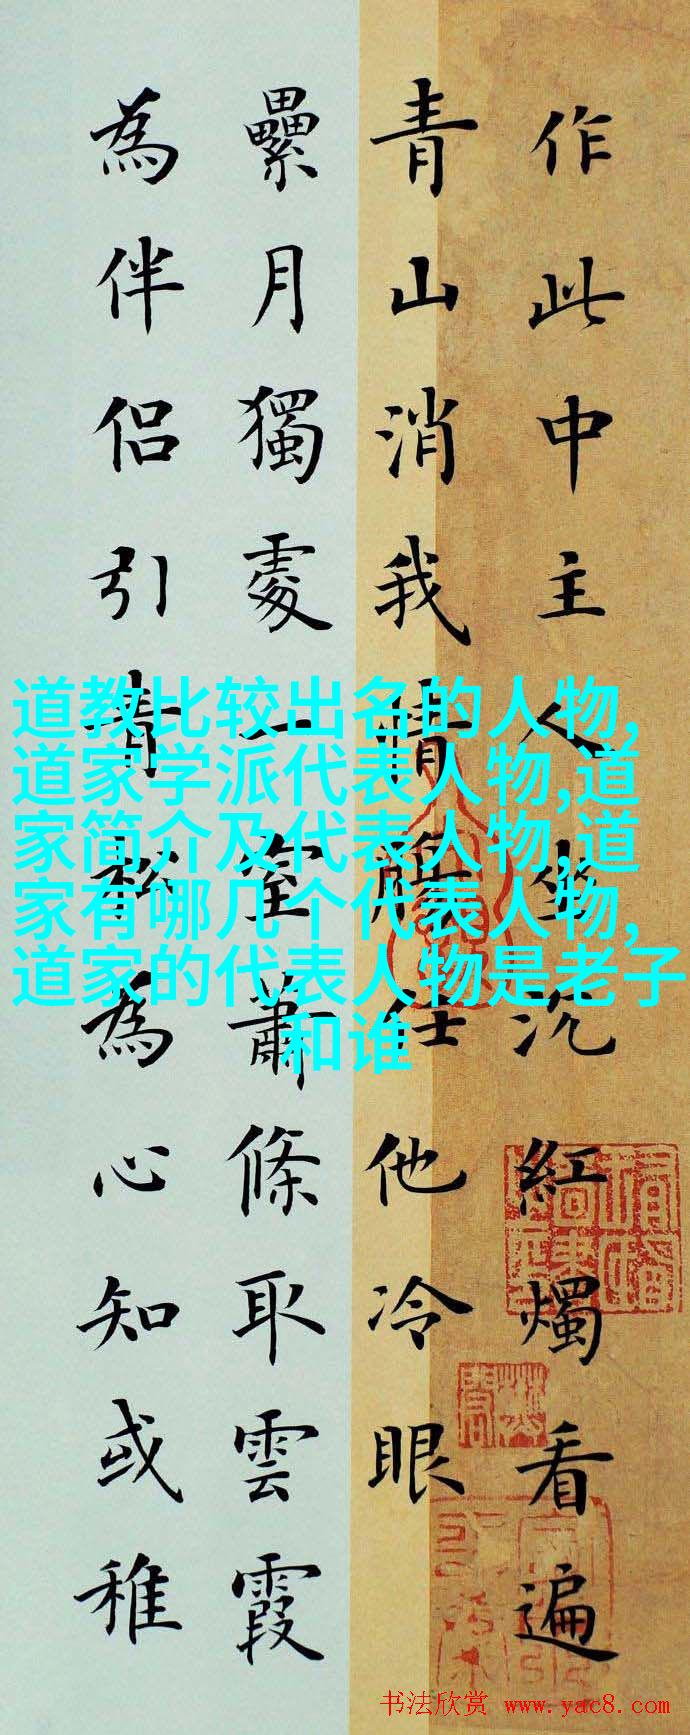 作此中主人坐沉紅燭看遍
青山消我情腸任他冷眼
纍月獨處一室蕭條取雲霞
為伴侶引青松為心知或稚
道教比较出名的人物,
道家学派代表人物,道
家简介及代表人物,道
家有哪几个代表人物,
道家的代表人物是老子
和谁
书法欣赏 www.yac8.com